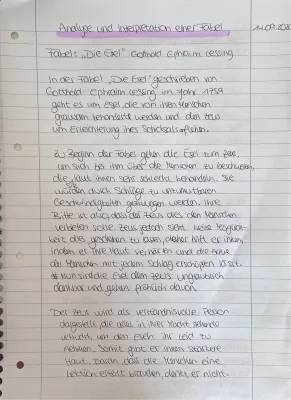 Analyse und Interpretation einer Fabel
Fabel: „Die Esel" Gotthold Ephraim Lessing
In der Fabel „Die Esel" geschrieben von
Gotthold Ephraim Lessing im Jahr 1759
geht es um Esel, die von ihren Menschen
grausam behandelt werden und den Zeus
um Erleichterung ihres Schicksals
Zu Beginn der Fabel gehen die Esel zum Zeus,
um sich bei ihm über die Menschen zu beschweren,
die, laut ihnen sehr schlecht behandeln. Sie
würden durch Schläge zu unzumutbaren
Geschwindigkeiten gezwungen werden. Ihre
Bitte ist auch, dass der Zeus dies den Menschen
verbieten solle. Zeus jedoch sieht keine Möglich-
keit dies geschehen zu lassen, daher hilft er ihnen,
indem er ihre Haut verhärten und die Arme
der Menschen mit jedem Schlag erschöpfen lässt.
Nun sind die Esel dem Zeus unglaublich
dankbar und gehen fröhlich davon.
Der Zeus wird als verständnisvolle Person
dargestellt, die alles in ihrer Macht stehende
versucht, um den Eseln ihr Leid zu
nehmen. Somit gibt er ihnen stärkere
Haut. Daran, daß die Menschen eine
Lektion erteilt bräuchten, denkt er nicht.